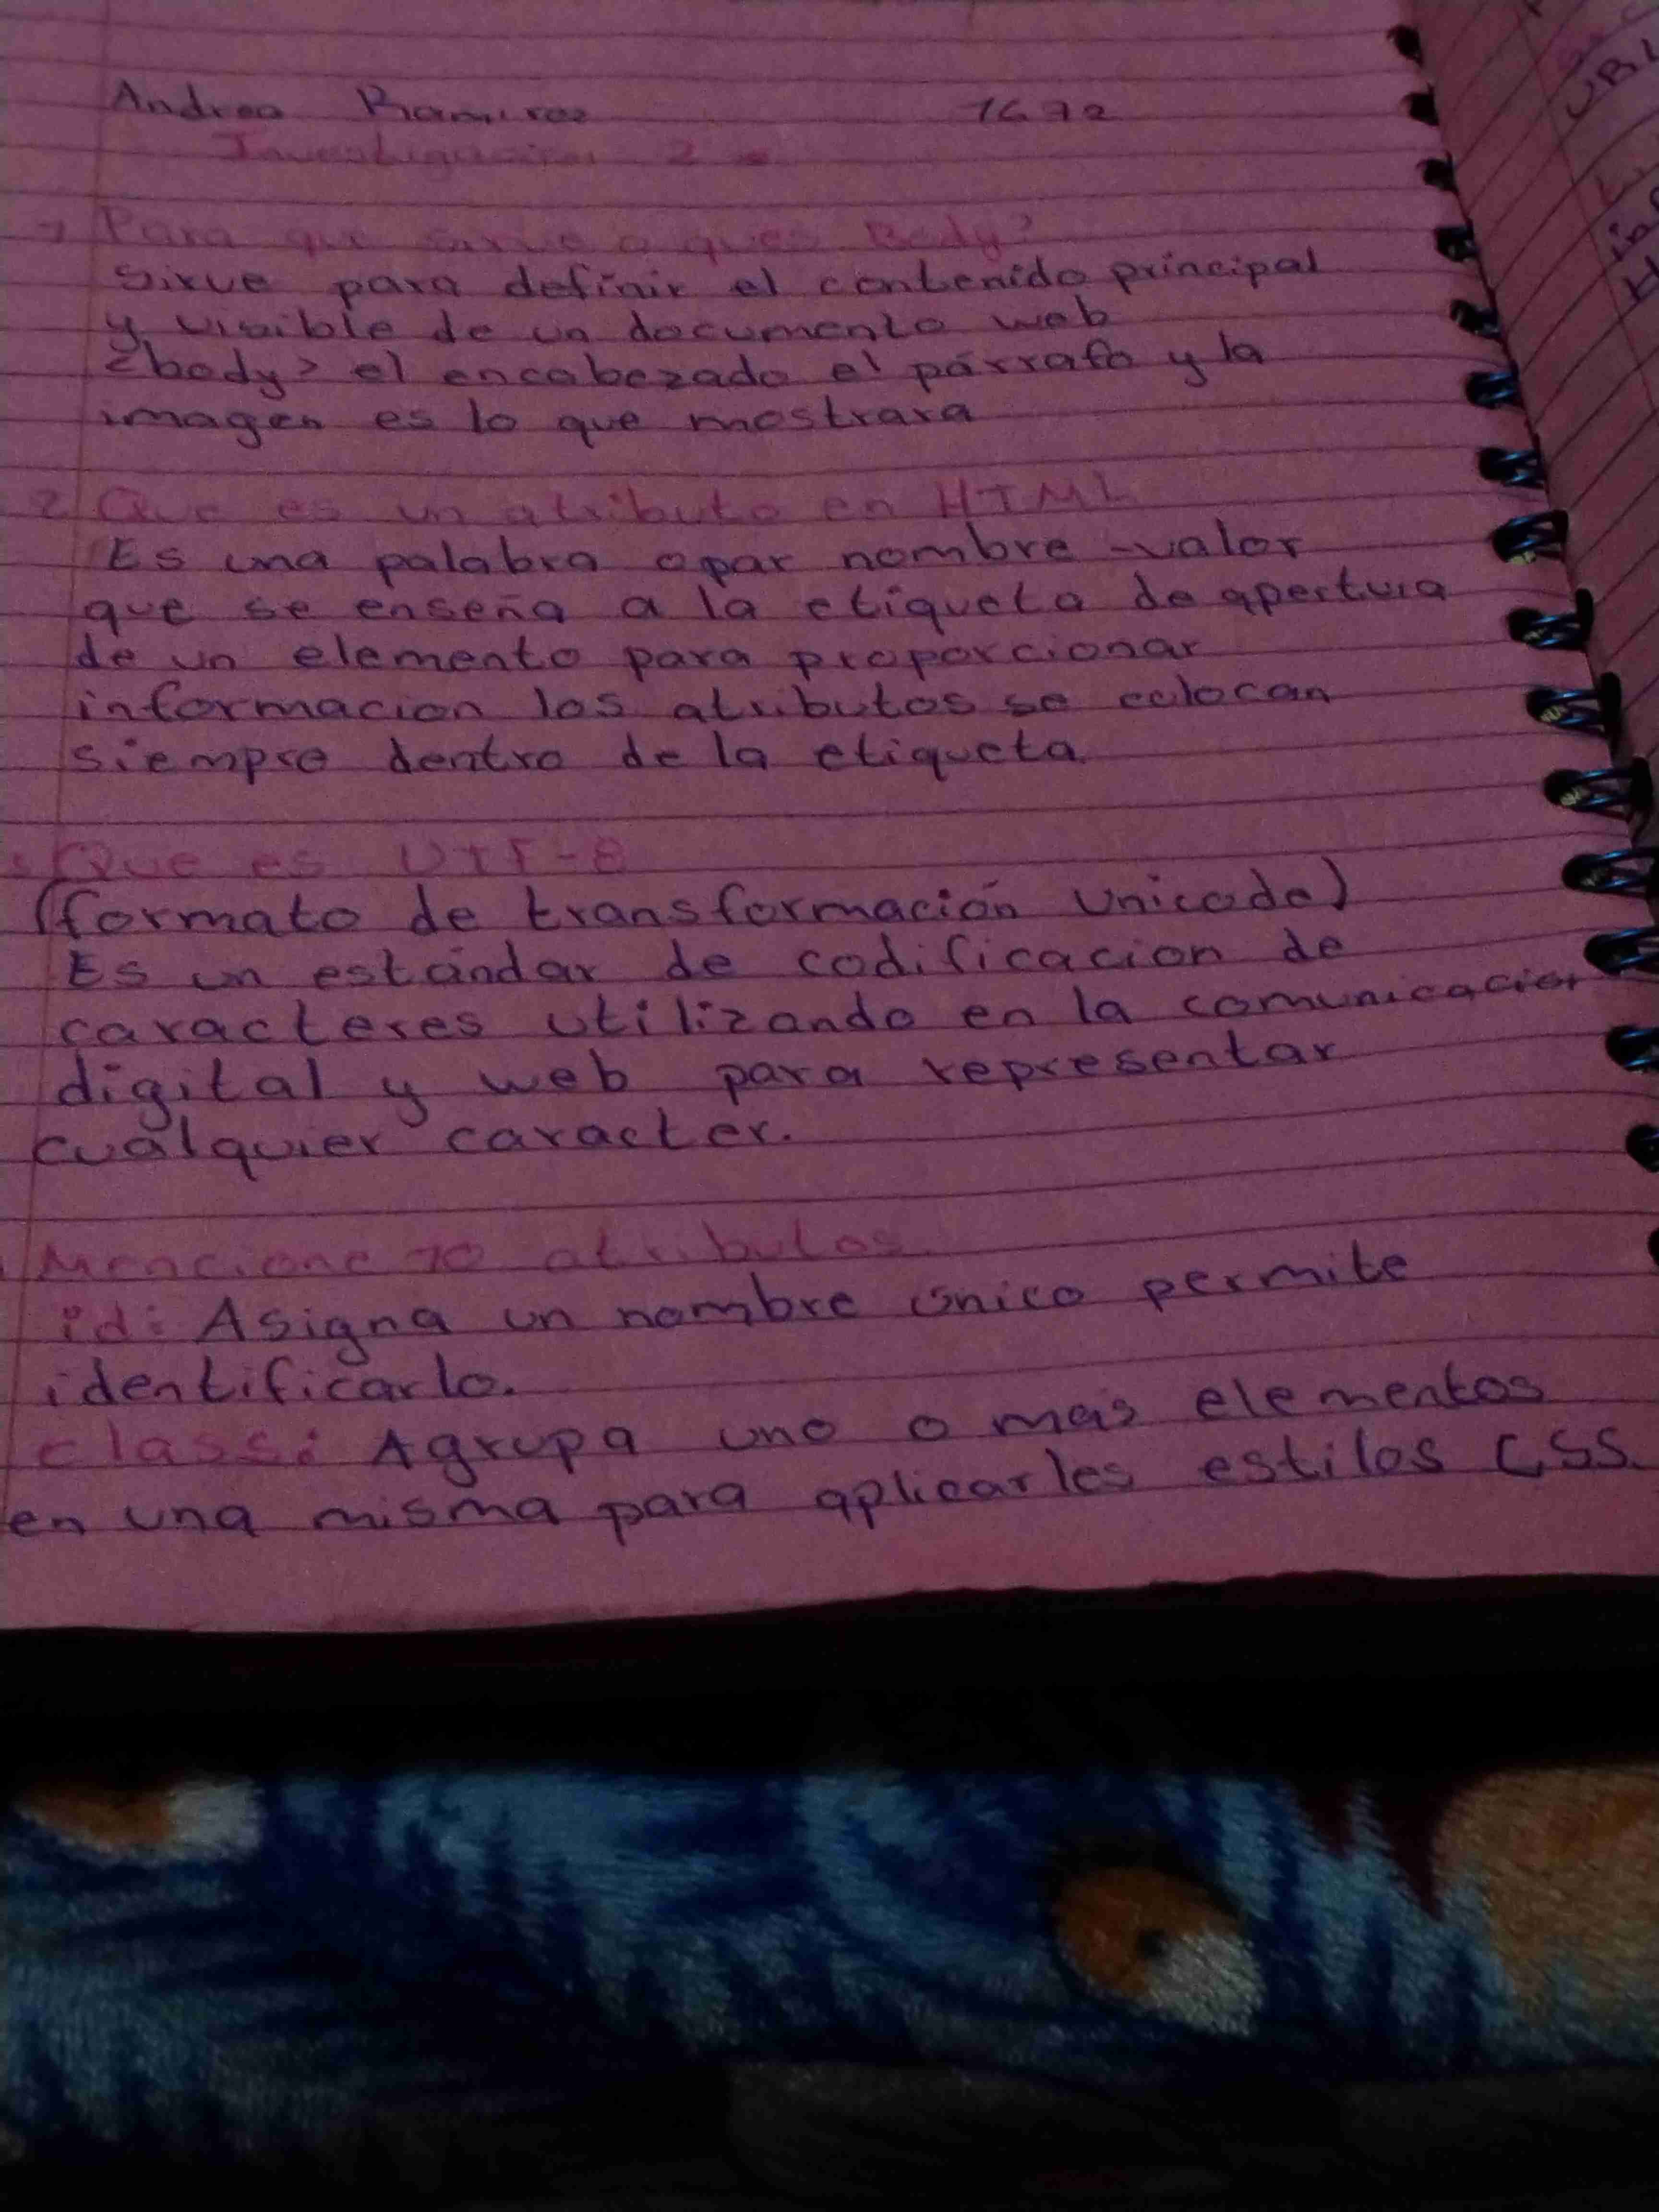 Andrea Ramirez 1672
Investigacion 2
1 Para que sirve o ques Body?
Sirve para definir el contenido principal
y visible de un documento web
<body> el encabezado el párrafo y la
imagen es lo que mostrara
2 Que es un atributo en HTML
Es una palabra o par nombre-valor
que se enseña a la etiqueta de apertura
de un elemento para proporcionar
informacion los atributos se colocan
siempre dentro de la etiqueta
Que es UTF-8
(formato de transformación Unicode)
Es un estándar de codificacion de
caracteres utilizando en la comunicacion
digital y web para representar
cualquier caracter.
Mencione 10 atributos.
id: Asigna un nombre único permite
identificarlo.
class: Agrupa uno o más elementos
en una misma para aplicarles estilos CSS.
URL